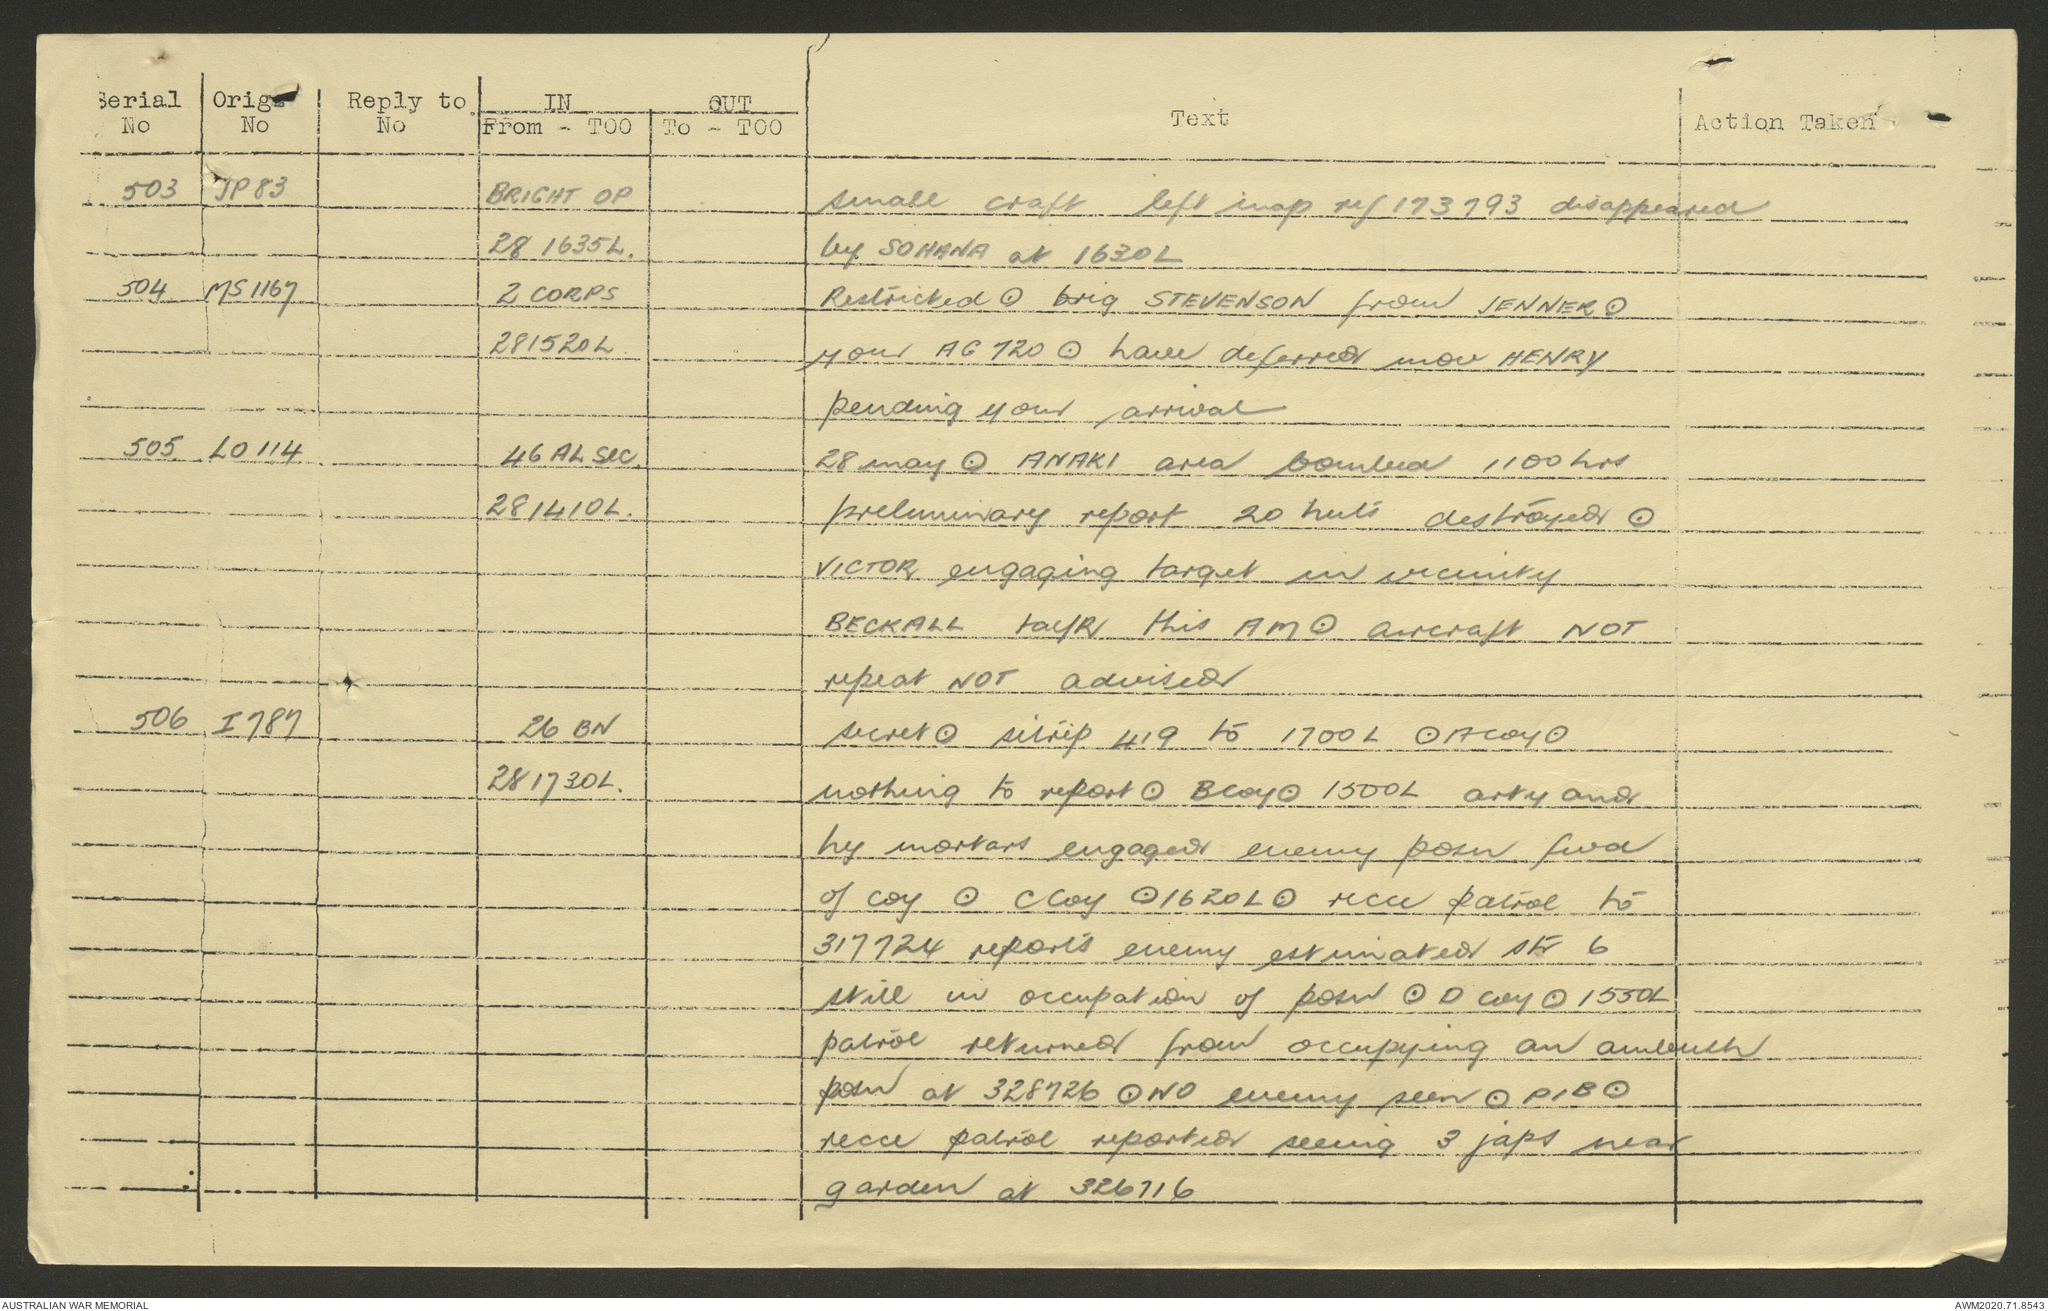 Serial No | Orig No | Reply to No | IN From - TOO | OUT To - TOO | Text | Action Taken
503 JP83 BRIGHT OP small craft left map ref 173793 disappeared
28 1635L. by SOHANA at 1630L
504 MS1167 2 CORPS Restricted ⊙ brig STEVENSON from JENNER ⊙
281520L your AG720 ⊙ have deferred move HENRY
pending your arrival
505 LO114 46 AL Sec. 28 may ⊙ ANAKI area bombed 1100 hrs
281410L. preliminary report 20 huts destroyed ⊙
VICTOR engaging target in vicinity
BECKALL this AM ⊙ aircraft NOT
repeat NOT advised
506 I787 26 BN secret ⊙ sitrep 419 to 1700L ⊙ A coy ⊙
281730L. nothing to report ⊙ B Coy ⊙ 1500L arty and
hy mortars engaged enemy posn fwd
of coy ⊙ C Coy ⊙ 1620L ⊙ recce patrol to
317724 reports enemy estimated str 6
still in occupation of posn ⊙ D coy ⊙ 1530L
patrol returned from occupying an ambush
posn at 328726 ⊙ NO enemy seen ⊙ PIB ⊙
recce patrol reported seeing 3 japs near
garden at 326716
AUSTRALIAN WAR MEMORIAL AWM2020.71.8543